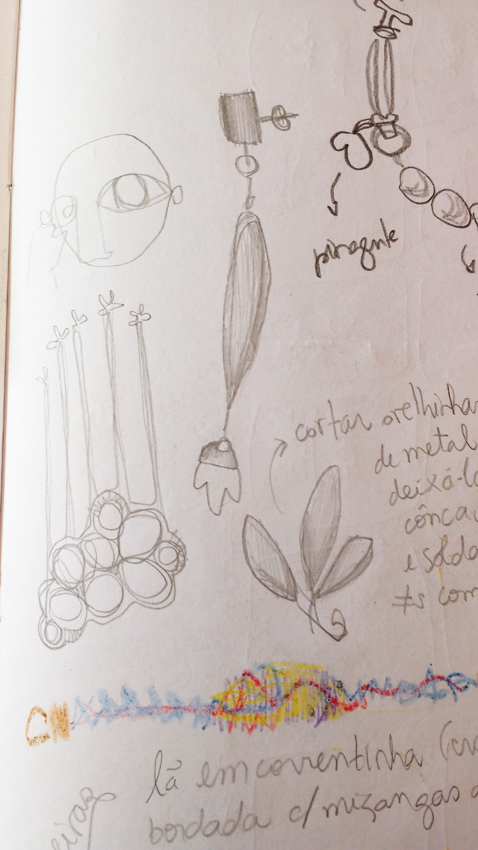 pingente
cortar orelhinha
de metal
deixá-l
cônca
e solda
≠s com
lã em correntinha (cro
bordada c/ mizangas